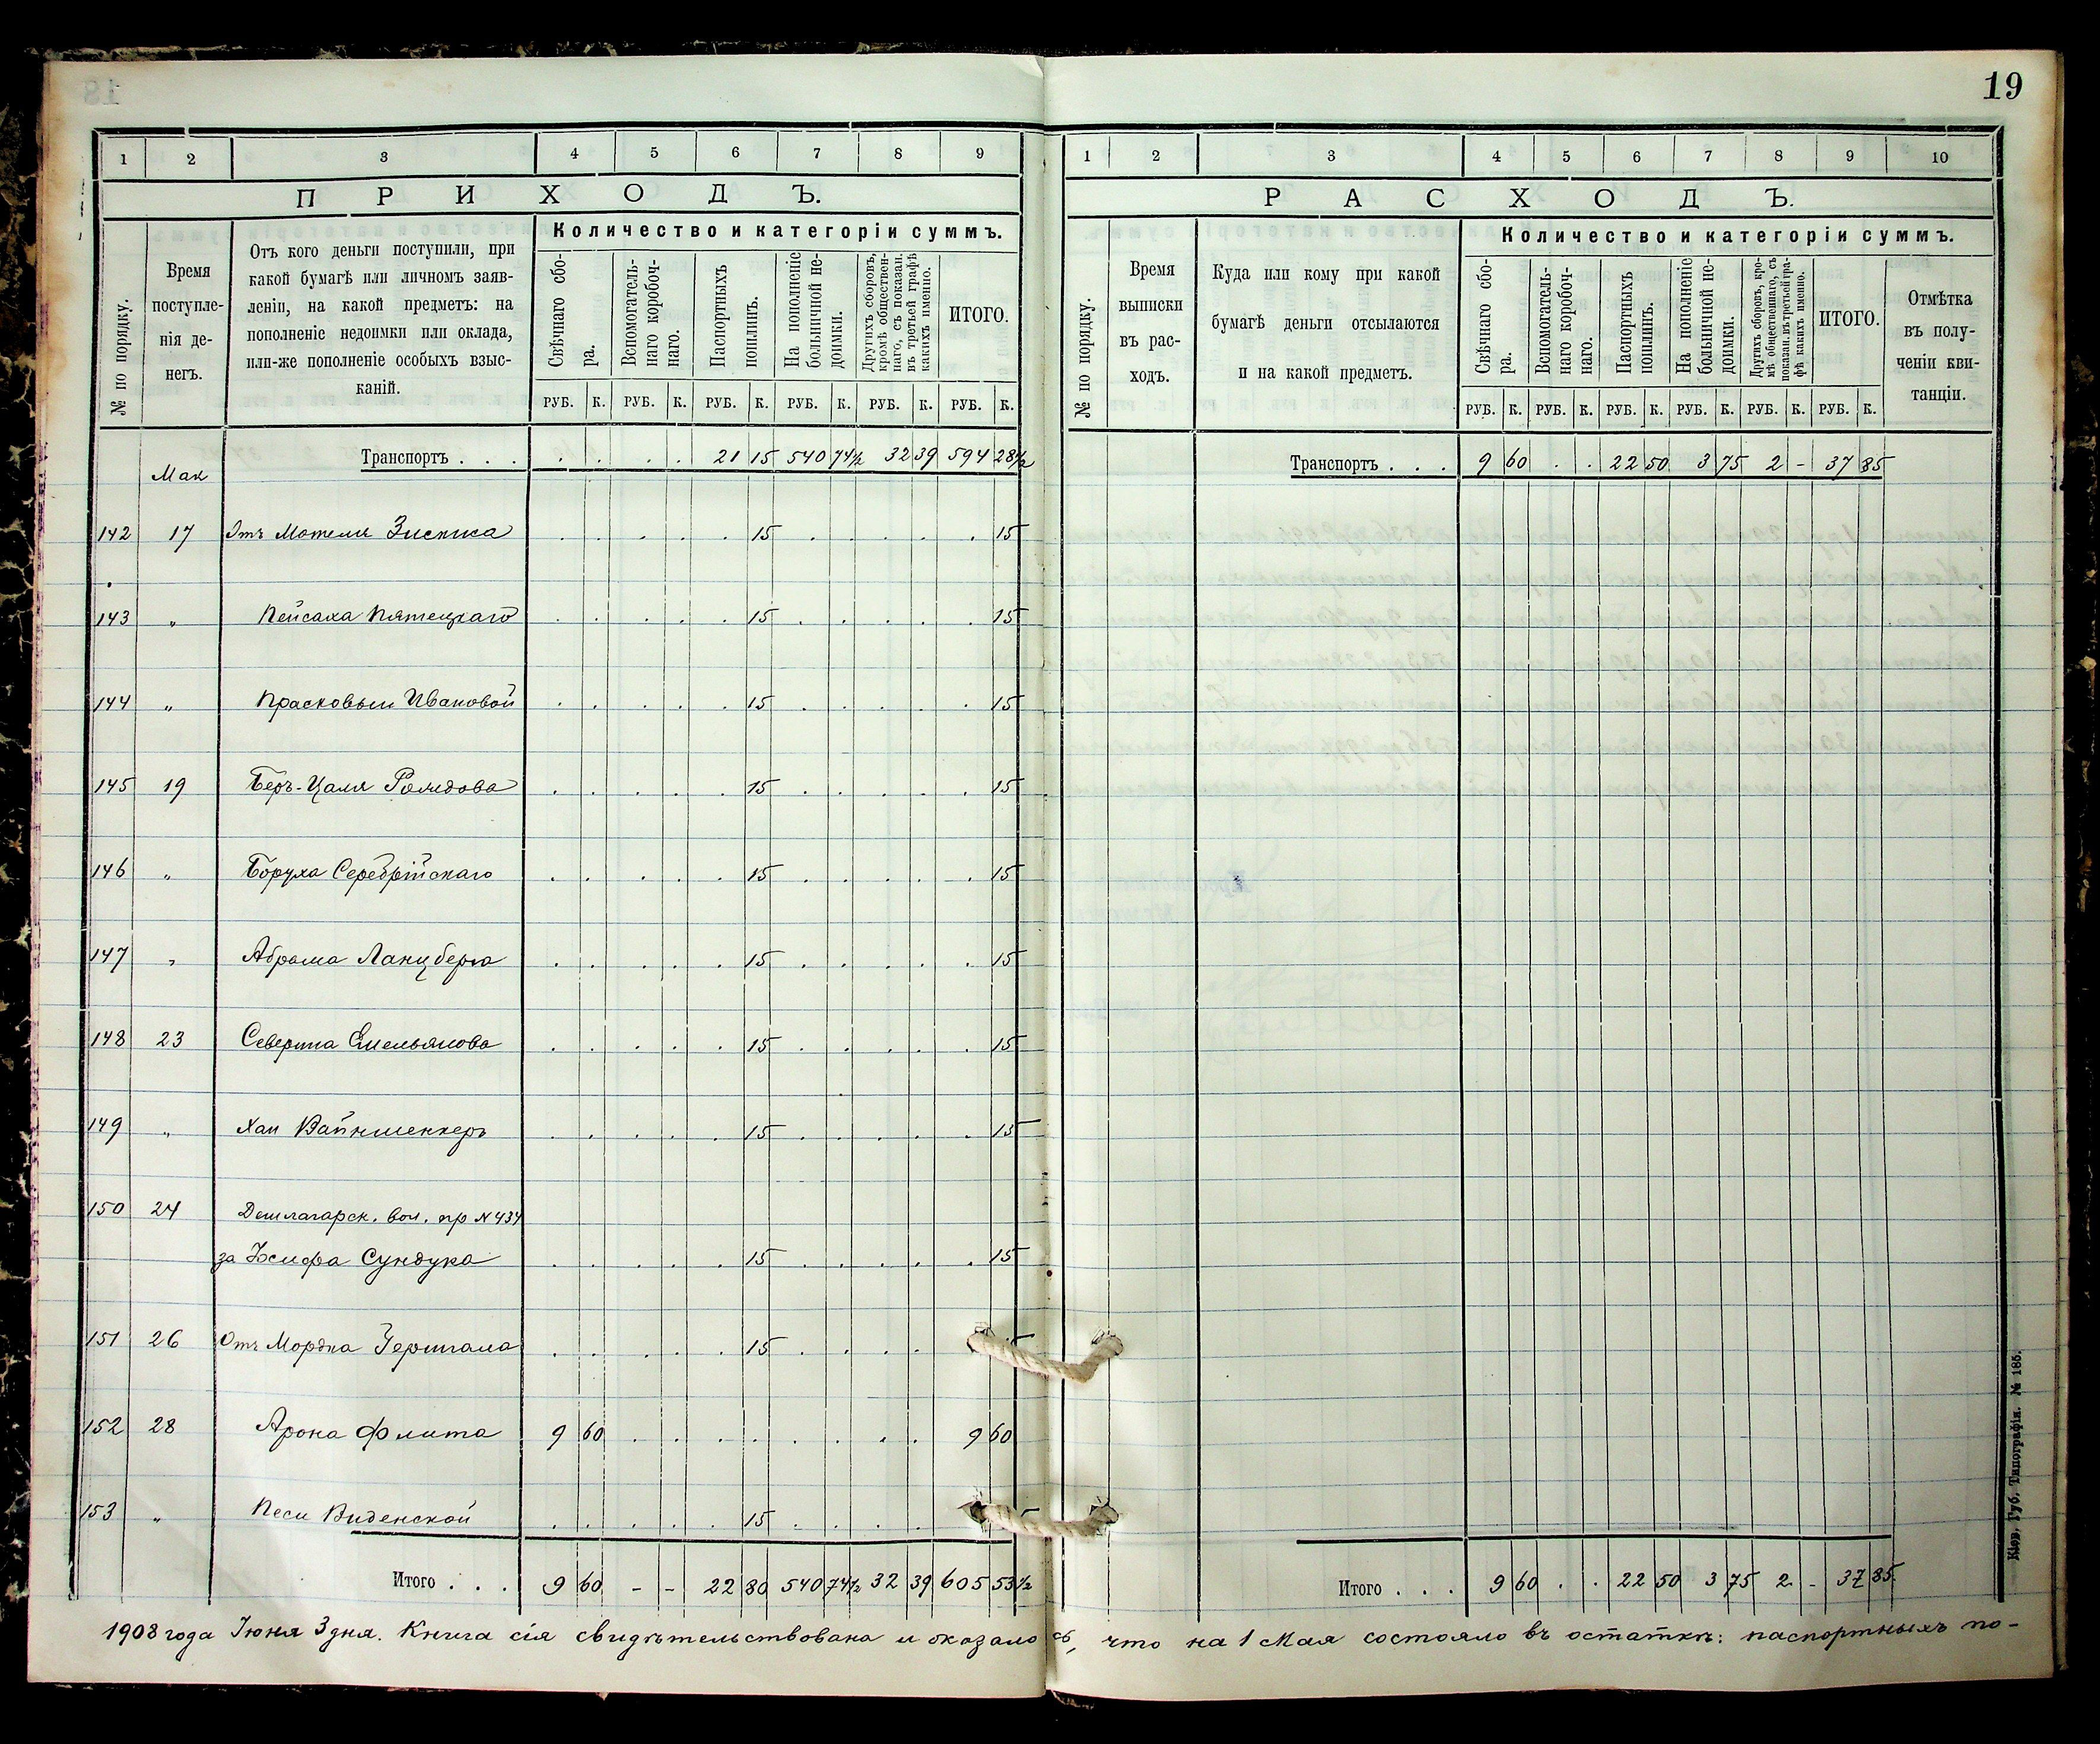 19
1 2 3 4 5 6 7 8 9
ПРИХОДЪ.
№ по порядку.
Время поступле-
нія де-
негъ.
Отъ кого деньги поступили, при
какой бумагѣ или личномъ заяв-
леніи, на какой предметъ: на
пополненіе недоимки или оклада,
или-же пополненіе особыхъ взыс-
каній.
Количество и категоріи суммъ.
Свѣчнаго сбо-
ра.
Вспомогатель-
наго коробоч-
наго.
Паспортныхъ
пошлинъ.
На пополненіе
больничной не-
доимки.
Другихъ сборовъ,
кромѣ обществен-
наго, съ показан.
въ третьей графѣ
какихъ именно.
ИТОГО.
РУБ. К. РУБ. К. РУБ. К. РУБ. К. РУБ. К. РУБ. К.
Транспортъ . . . . . . . 21 15 540 74½ 32 39 594 28½
Мая
142 17 Отъ Мотеля 15 15
143 " Пейсаха Пятецкаго 15 15
144 " Прасковьи Ивановой 15 15
145 19 Беръ-Цаля 15 15
146 " Боруха Серебрійскаго 15 15
147 " Абрама Ланцберга 15 15
148 23 Северина Емельянова 15 15
149 " Хаи Вайншенкеръ 15 15
150 24 Дешлагарск. вол. пр № 434
за Іосифа Сундука 15 15
151 26 Отъ Мордка 15
152 28 Арона Флита 9 60 9 60
153 " Песи Виденской 15
Итого . . . 9 60 - - 22 80 540 74½ 32 39 605 53½
1 2 3 4 5 6 7 8 9 10
РАСХОДЪ.
№ по порядку.
Время
выписки
въ рас-
ходъ.
Куда или кому при какой
бумагѣ деньги отсылаются
и на какой предметъ.
Количество и категоріи суммъ.
Свѣчнаго сбо-
ра.
Вспомогатель-
наго коробоч-
наго.
Паспортныхъ
пошлинъ.
На пополненіе
больничной не-
доимки.
Другихъ сборовъ, кро-
мѣ общественнаго, съ
показан. въ третьей гра-
фѣ какихъ именно.
ИТОГО.
Отмѣтка
въ полу-
ченіи кви-
танціи.
РУБ. К. РУБ. К. РУБ. К. РУБ. К. РУБ. К. РУБ. К.
Транспортъ . . . 9 60 . . 22 50 3 75 2 - 37 85
Итого . . . 9 60 . . 22 50 3 75 2 - 37 85
1908 года Іюня 3 дня. Книга сія свидѣтельствована и оказалось, что на 1 Мая состояло въ остаткѣ: паспортныхъ по-
Кіев. Губ. Типографія. № 185.